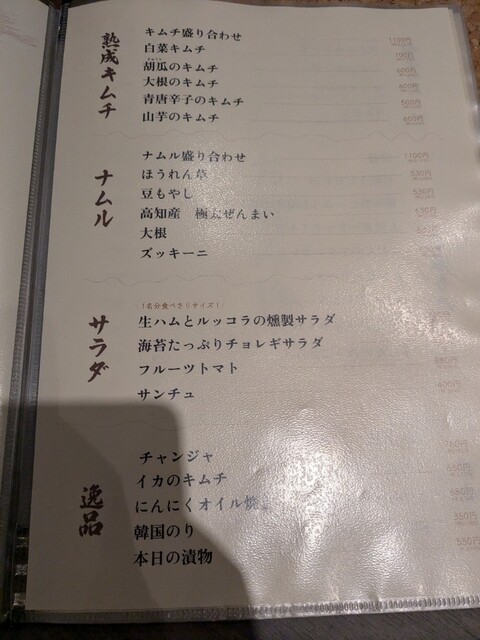 熟成キムチ
キムチ盛り合わせ 1100円
白菜キムチ
胡瓜のキムチ 600円
大根のキムチ 600円
青唐辛子のキムチ 500円
山芋のキムチ 600円
ナムル
ナムル盛り合わせ 1100円
ほうれん草 530円
豆もやし 530円
高知産 極太ぜんまい 530円
大根
ズッキーニ
サラダ
1名分食べきりサイズ!
生ハムとルッコラの燻製サラダ
海苔たっぷりチョレギサラダ
フルーツトマト
サンチュ 400円
逸品
チャンジャ
イカのキムチ
にんにくオイル焼
韓国のり 350円
本日の漬物 550円